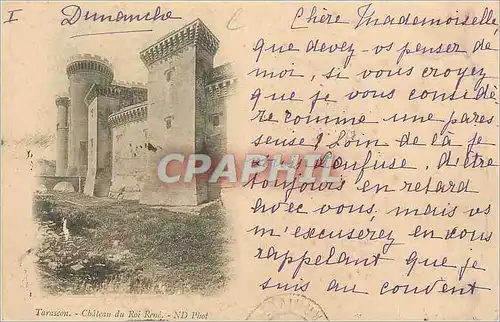 I Dimanche
Chère Mademoiselle,
que devez-vs penser de
moi, si vous croyez
que je vous considè
re comme une pares
seuse! Loin de là je
suis confuse, d'être
toujours en retard
avec vous, mais vs
m'excuserez en vous
rappelant que je
suis au couvent
CPARHAMA
Tarascon. - Château du Roi René. - ND Phot